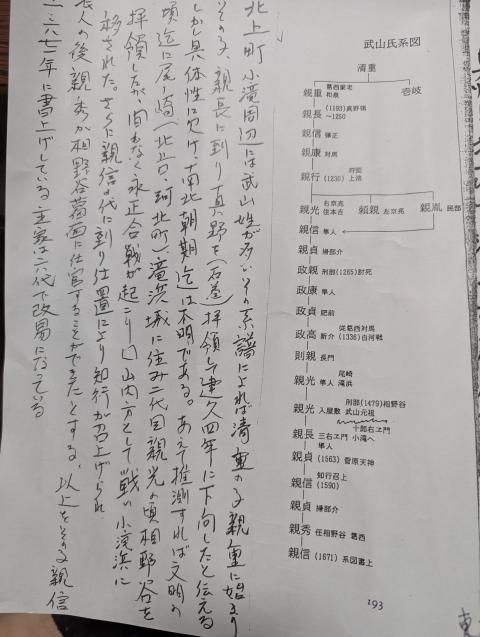 北上町 小滝周辺には武山姓が多いその系譜によれば清重の子親重に始まり
その子、親長に到り真野を(石巻)拝領して建久四年に下向したと伝える
しかし具体性に欠け、南北朝期迄は不明である。あえて推測すれば文明の
頃迄に尾ノ崎(北上、河北町)滝浜城に住み二代目親光の頃相野谷を
拝領したが、間もなく永正合戦が起こり 山内方として戦い小滝浜に
移された。さらに親信の代に到り仕置により知行が召上げられ
の後親秀が相野谷葛西に仕官することができたとする、以上をその親信
一六七一年に書上げしている主家は六代で改易になっている
武山氏系図
清重
親重 葛西家老 和泉
壱岐
親長 (1193)真野領 〜1250
親信 弾正
親康 対馬
親行 (1230) 上洛
親光 右京亮 佳本吉
頼親 左京亮
親胤 民部
親信 隼人
親貞 掃部介
政親 刑部(1265)討死
政康 隼人
政貞 肥前
政高 新介 従葛西対馬 (1336)白河戦
則親 長門
親光 隼人 尾崎 滝浜
親光 入屋数 刑部(1479)相野谷 武山元祖
親長 三右ヱ門 隼人 十郎右ヱ門 小滝へ
親貞 (1563) 菅原天神
親信 知行召上 (1590)
親貞 掃部介
親秀 任相野谷 葛西
親信 (1671) 系図書上
193